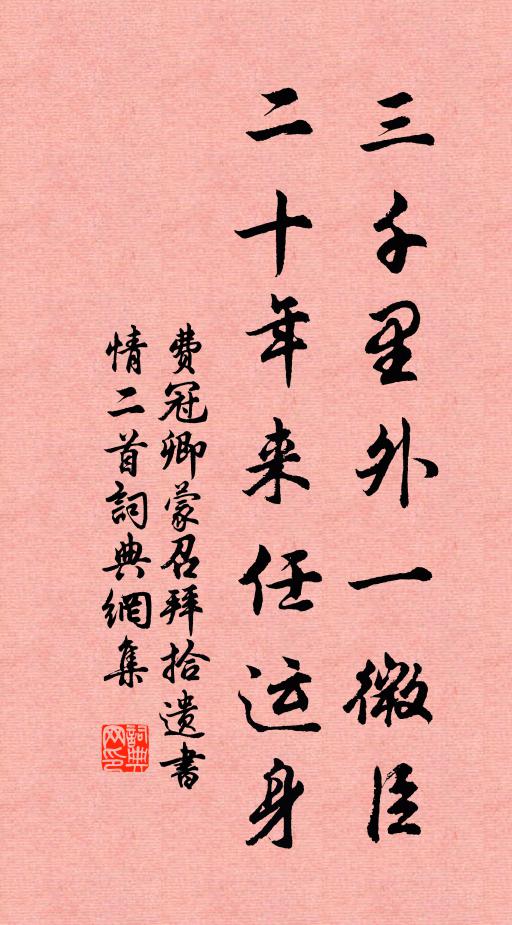 三千里外一微臣
二十年来任运身
費冠卿蒙召拜拾遗書
情二首詞典網集
詞典網印